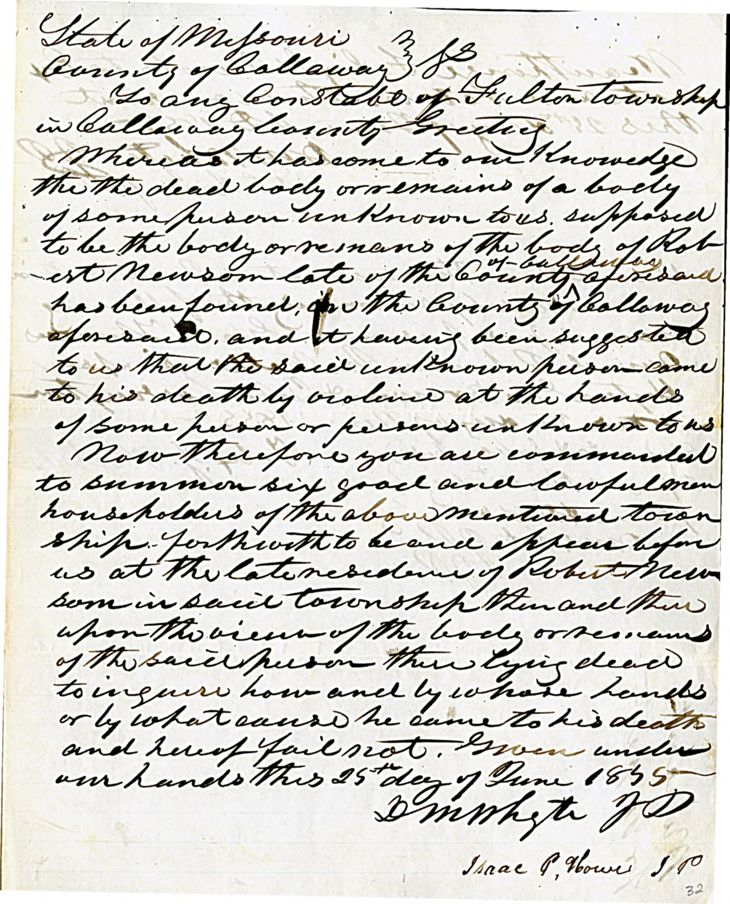 State of Missouri
County of Callaway } SS
To any Constable of Fulton township
in Callaway County Greeting
Whereas it has come to our Knowledge
the the dead body or remains of a body
of some person unknown to us. supposed
to be the body or remans of the body of Rob-
ert Newsom late of the County of Callaway aforesaid
has been found, in the County of Callaway
aforesaid, and it having been suggested
to us that the said unknown person came
to his death by violence at the hands
of some person or persons unknown to us
Now therefore you are commanded
to summon six good and lawful men
householders of the above mentioned town
ship forthwith to be and appear before
us at the late residence of Robert New-
som in said township then and there
upon the view of the body or remains
of the said person there lying dead
to inquire how and by whose hands
or by what cause he came to his death
and hereof fail not. Given under
our hands this 25th day of June 1855
D M Whyte J P
Isaac P, Howe J P
32